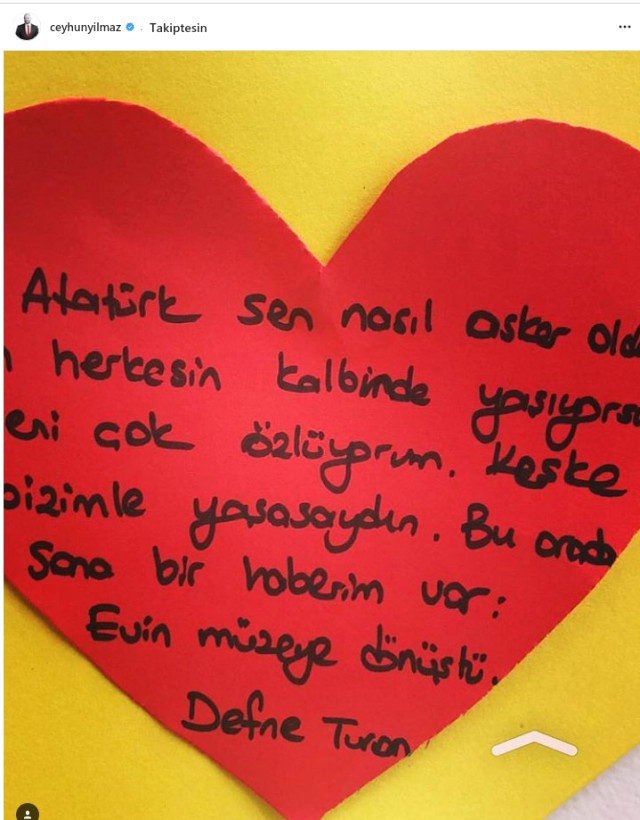 ceyhunyilmaz · Takiptesin
Atatürk sen nasıl asker oldu
n herkesin kalbinde yaşıyorsu
eni çok özlüyorum. Keşke
bizimle yaşasaydın. Bu arada
Sana bir haberim var:
Evin müzeye dönüştü.
Defne Turan